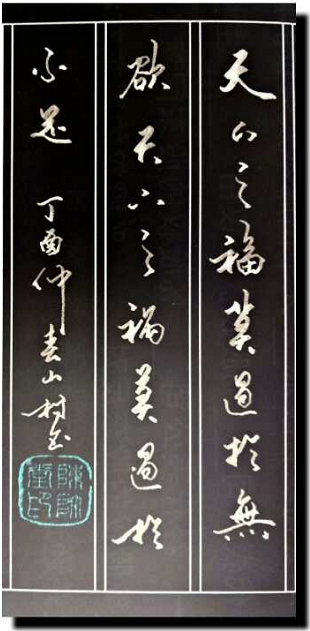 天下之福莫過於無
欲天下之禍莫過於
不足 丁酉仲春山村書